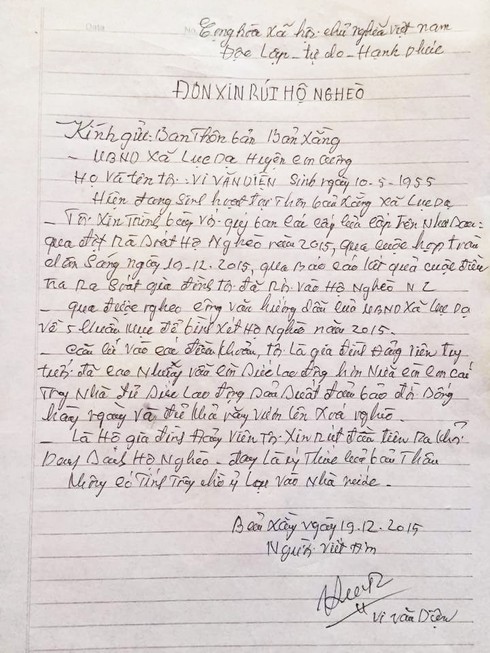 Cộng hòa xã hội chủ nghĩa việt nam
Độc Lập - tự do - Hạnh phúc
ĐƠN XIN RÚT HỘ NGHÈO
Kính gửi: Ban Thôn bản Bản Xằng
- UBND Xã Lục Dạ Huyện Con Cuông
Họ và tên tôi: Vi VĂN DIỆN Sinh ngày 10-5-1955
Hiện đang sinh hoạt tại Thôn bản Xằng Xã Lục Dạ
- Tôi Xin Trình bày với quý ban các cấp Trên Như Sau:
qua đợt Rà Soát Hộ Nghèo năm 2015, qua cuộc họp
Sáng ngày 19-12-2015, qua Báo cáo kết quả cuộc điều
Tra Rà Soát gia đình tôi đã Rơi vào Hộ Nghèo N2
- qua được nghe công văn hướng dẫn của UBND Xã Lục Dạ
về 5 chuẩn mực để bình xét Hộ Nghèo năm 2015.
- căn cứ vào các điều khoản, tôi là gia đình Đảng Viên tuy
tuổi đã cao Nhưng vẫn còn Sức Lao động hơn Nữa con em
Trong Nhà đủ Sức Lao động Sản Xuất đảm bảo đời Sống
hàng ngày và đủ khả năng vươn lên Xoá nghèo.
- Là Hộ gia đình Đảng Viên Tôi Xin Rút đầu tiên Ra khỏi
Danh Sách Hộ Nghèo. đây là ý Thức của bản Thân
không có Tính Trông chờ ỷ lại vào Nhà nước.
Bản Xằng ngày 19.12.2015
Người viết đơn
Vi văn Diện